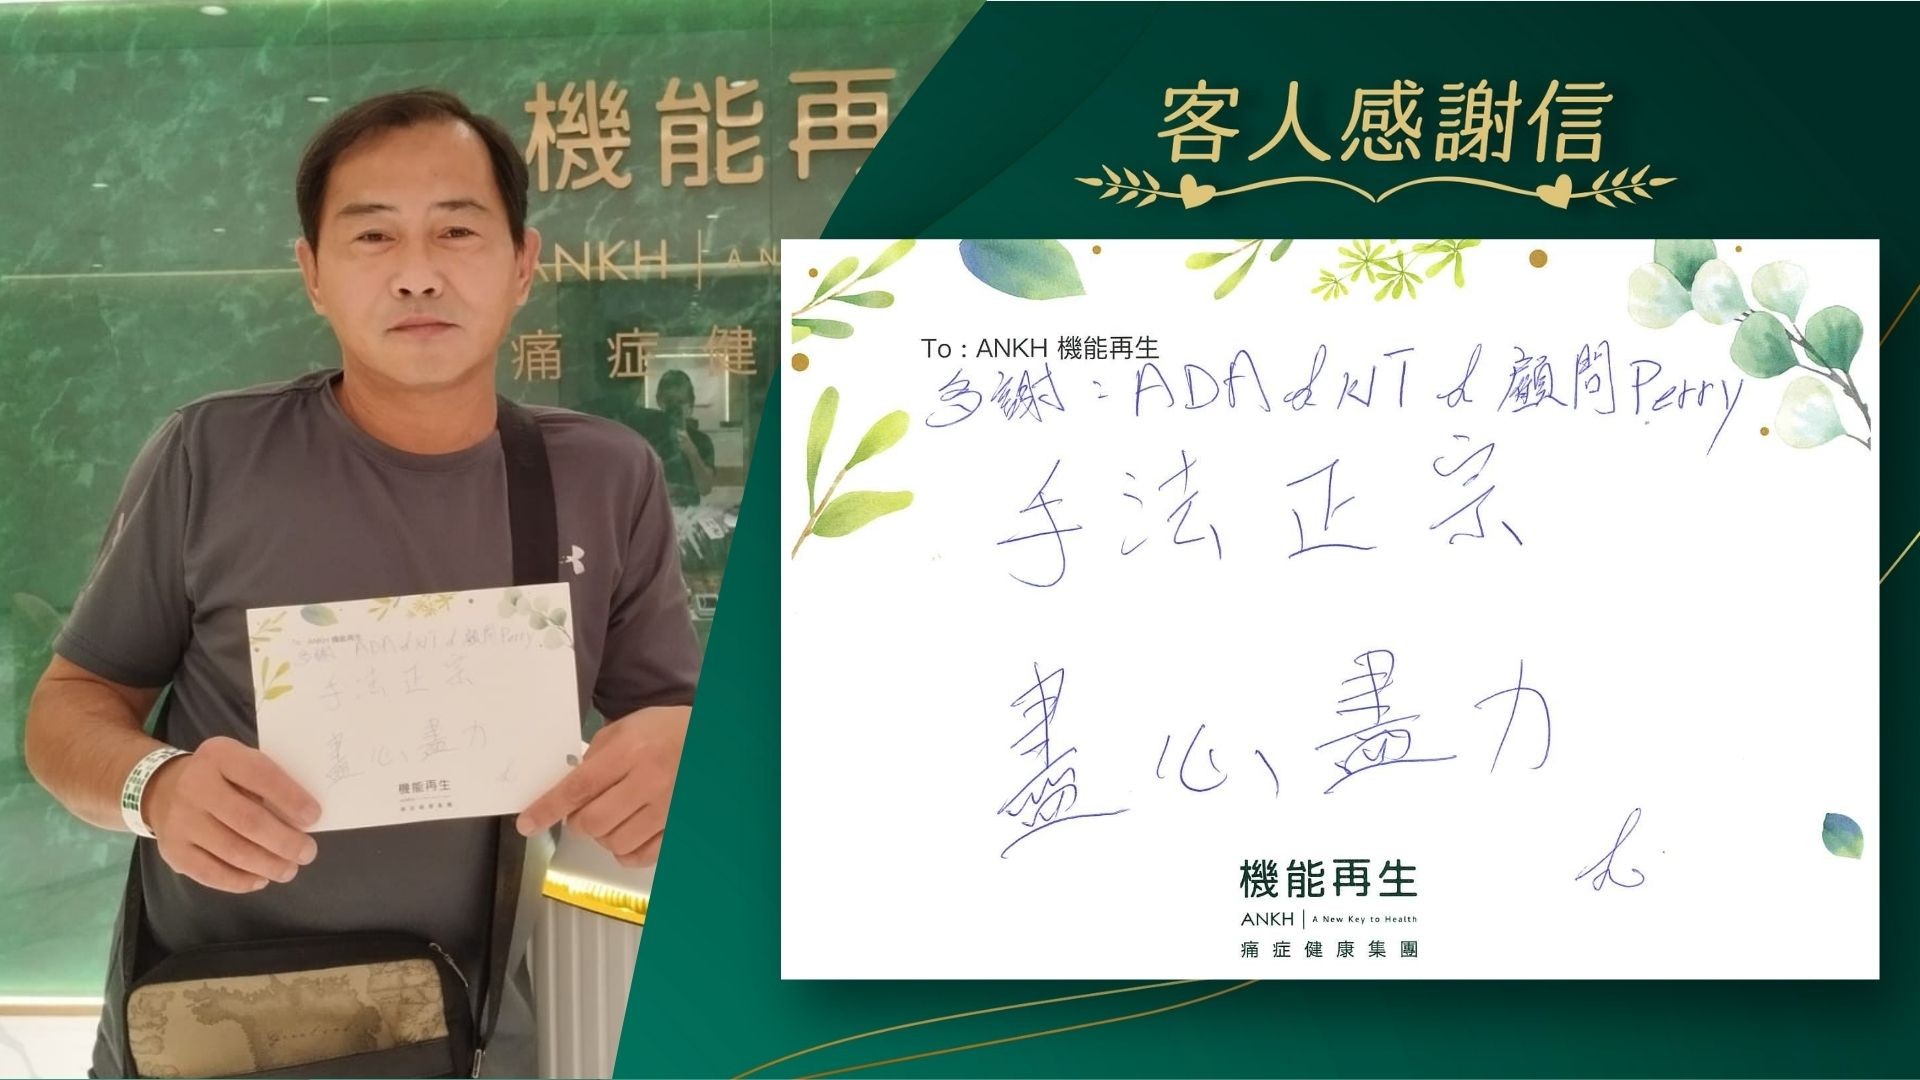 機能再
ANKH | A N
痛症健
客人感謝信
To : ANKH 機能再生
多謝：ADA & NT & 顧問Perry
手法正宗
盡心盡力
機能再生
ANKH | A New Key to Health
痛症健康集團
To : ANKH 機能再生
多謝：ADA & NT & 顧問Perry
手法正宗
盡心盡力
機能再生